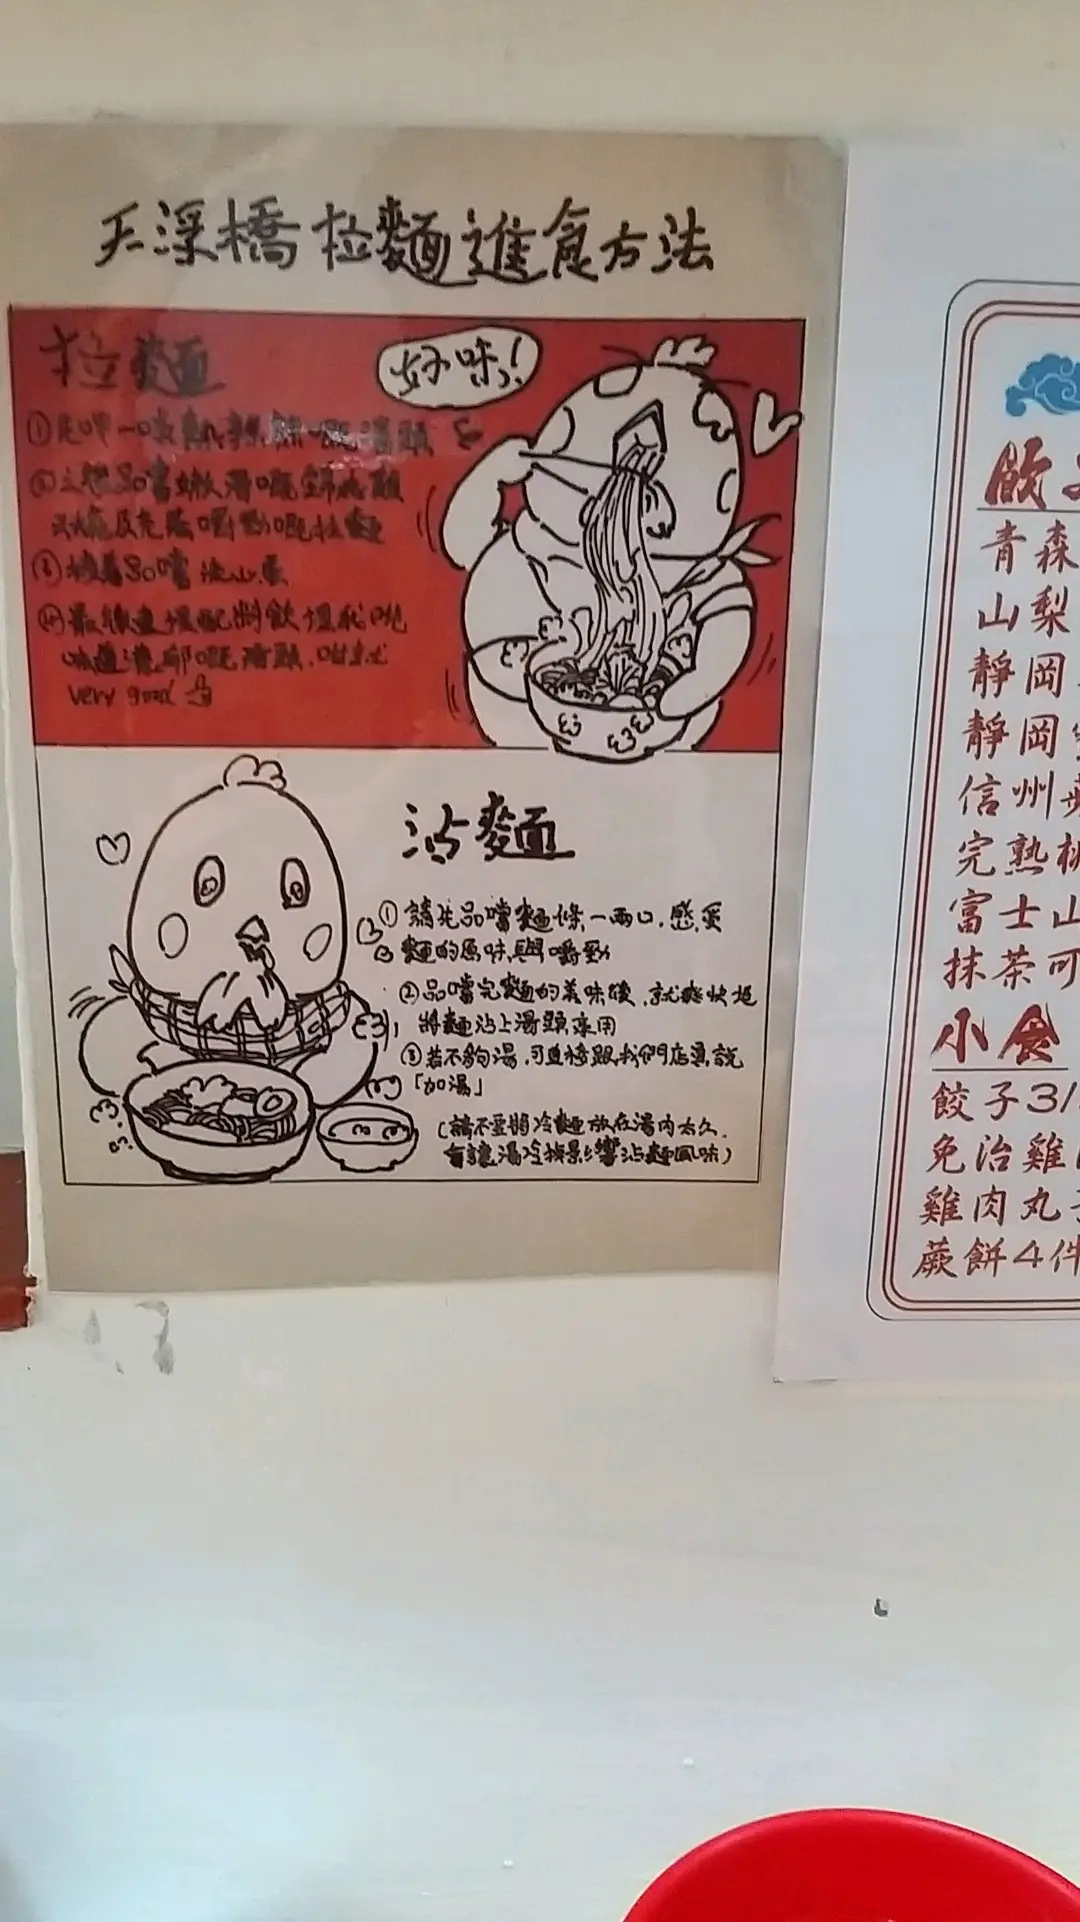 天滛橋拉麵進食方法
拉麵
好味!
①先呷一啖熱辣辣嘅湯頭
②立即品嚐嫩滑嘅
嘅拉麵
③接着品嚐流心蛋
④最後連埋配料飲埋我哋
味道濃郁嘅湯頭，咁就
very good
沾麵
①請先品嚐麵條一兩口，感受
麵的原味與嚼勁
②品嚐完麵的美味後，就趕快把
將麵沾上湯頭享用
③若不夠湯，可直接跟我們店員說
「加湯」
(請不要將冷麵放在湯內太久，
會讓湯冷掉影響沾麵風味)
飲
青森
山梨
靜岡
靜岡
信州
完熟桃
富士山
抹茶可
小食
餃子3/
免治雞
雞肉丸子
蕨餅4件